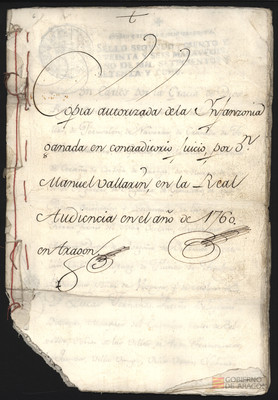 Copia autorizada dela Ynfanzonia
ganada en contradictorio juicio por Dn.
Manuel Vallarin en la Real
Audiencia en el año de 1760
en Aragon
GOBIERNO
DE ARAGON